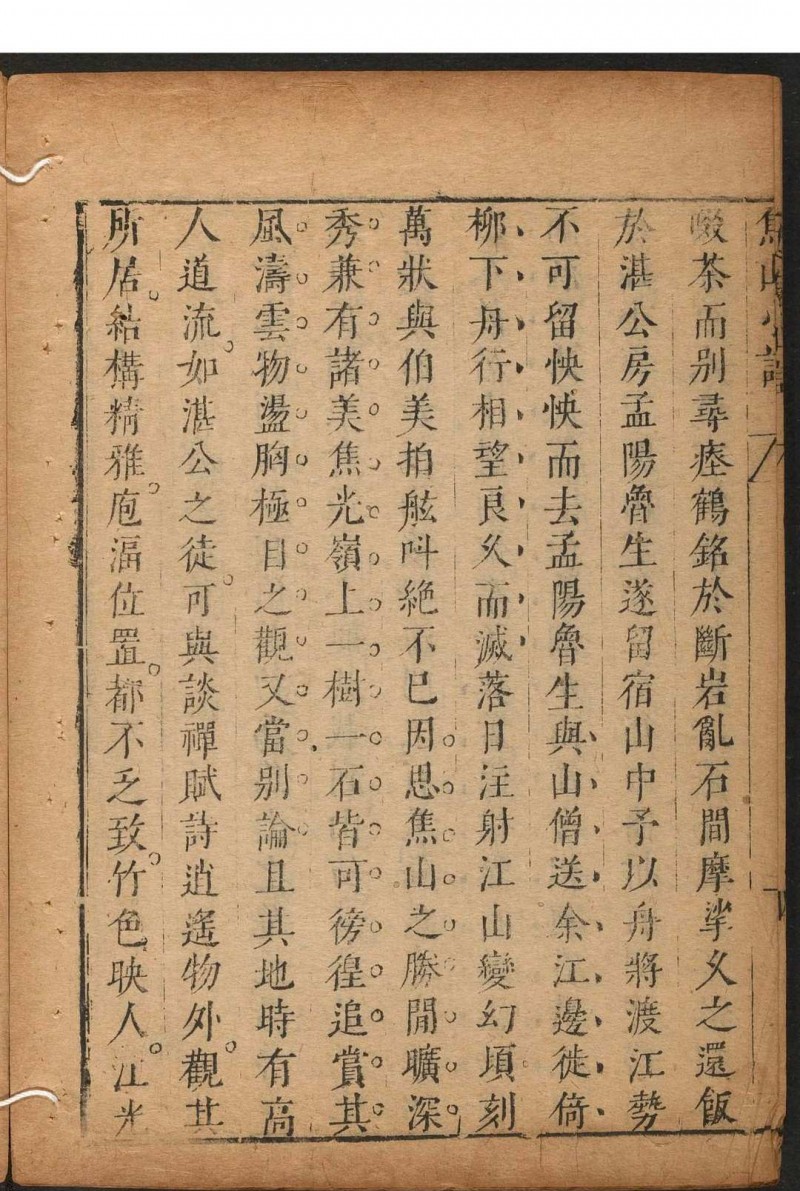 啜茶而别尋瘞鶴銘於斷岩亂石間摩挲久之還飯
於湛公房孟陽魯生遂留宿山中予以舟將渡江勢
不可留怏怏而去孟陽魯生與山僧送余江邊徙倚
柳下舟行相望良久而滅落日注射江山變幻頃刻
萬狀與伯美拍舷叫絶不已因思焦山之勝閒曠深
秀兼有諸美焦光嶺上一樹一石皆可徬徨追賞其
風濤雲物盪胸極目之觀又當别論且其地時有高
人道流如湛公之徒可與談禪賦詩逍遙物外觀其
所居結構精雅庖湢位置都不乏致竹色映人江光